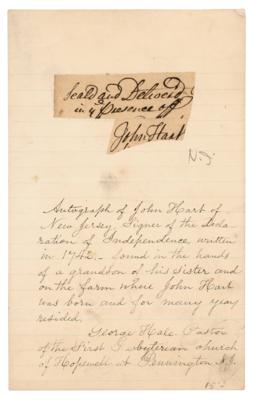 Seald and Deliverd
in ye Presence off
John Hart
N.J.
Autograph of John Hart of
New Jersey, Signer of the Decla
ration of Independence written
in 1742 - found in the hands
of a grandson of his Sister and
on the farm where John Hart
was born and for many years
resided.
George Hale Pastor
of the First Presbyterian church
of Hopewell at Pennington N.J.